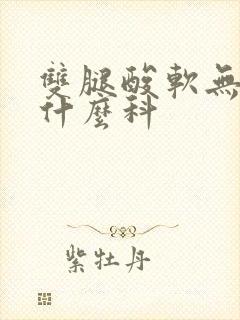 雙腿酸軟無
什麼科
紫牡丹